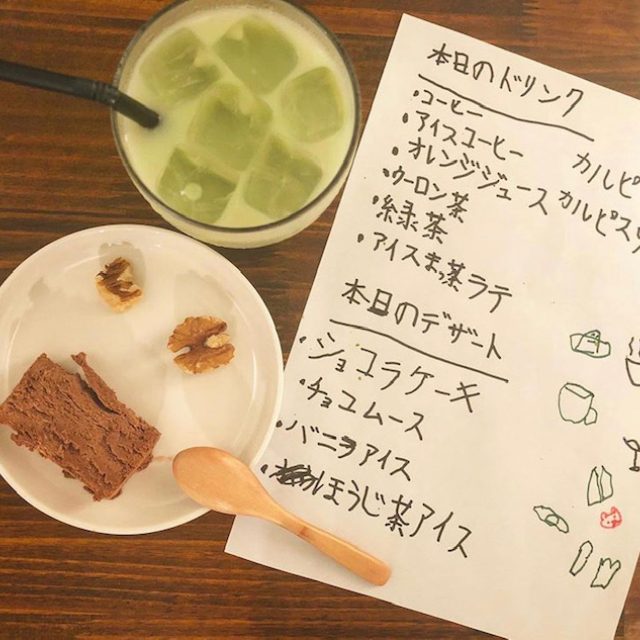 本日のドリンク
・コーヒー
・アイスコーヒー カルピ
・オレンジジュース カルピスソ
・ウーロン茶
・緑茶
・アイスまっ茶ラテ
本日のデザート
・ショコラケーキ
・チョコムース
・バニラアイス
・ほうじ茶アイス